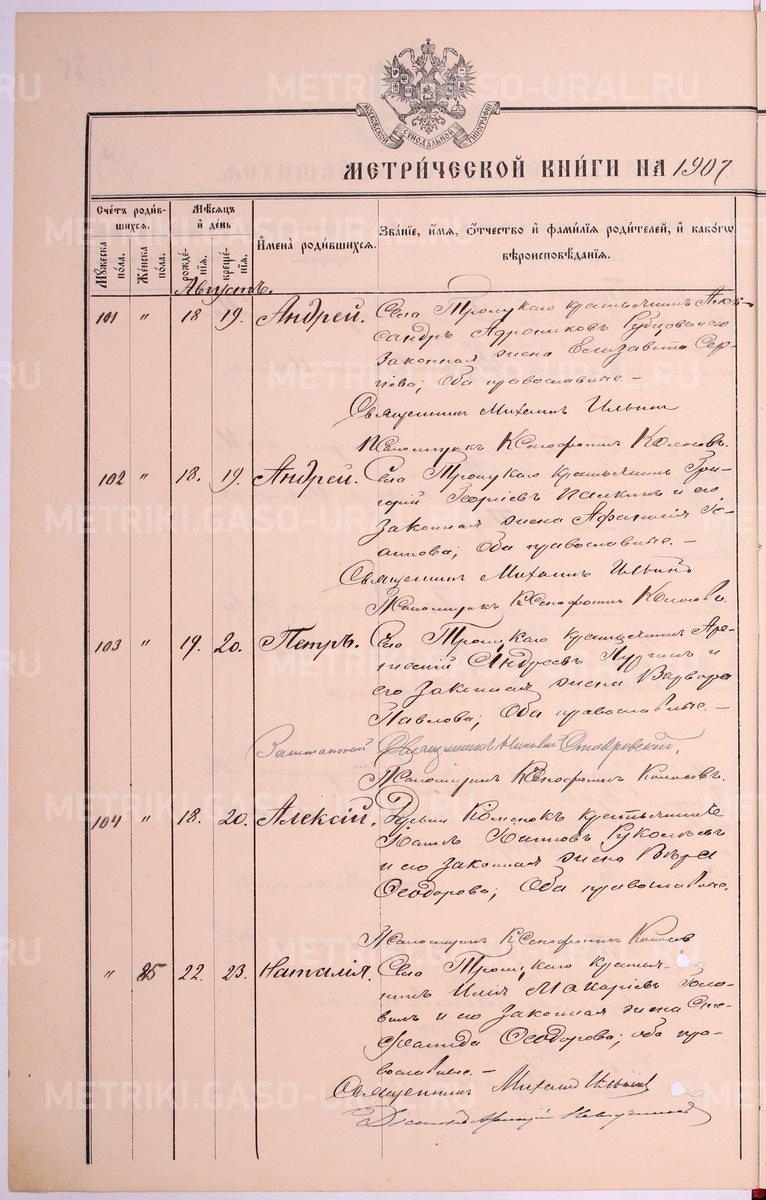 МОСКОВСКОЙ СѴНОДАЛЬНОЙ ТИПОГРАФІИ
МЕТРИ́ЧЕСКОЙ КНИ́ГИ НА 1907
Счетъ роди́вшихсѧ.
Мѣ́сѧцъ и҆ день
И҆мена̀ роди́вшихсѧ.
Зва́нїе, и҆́мѧ, ѻ҆́тчество и҆ фами́лїѧ роди́телей, и҆ како́гѡ вѣроисповѣ́данїѧ.
Мꙋ́жеска по́ла.
Же́нска по́ла.
рожде́нїѧ.
креще́нїѧ.
Августъ.
101 " 18 19. Андрей. Села Троицкаго крестьянинъ Алек-
сандръ Андрониковъ Рубцовъ и его
законная жена Елизавета Сер-
гіева; оба православные. -
Священникъ Михаилъ Ильинъ
Псаломщикъ Ксенофонтъ Колосовъ.
102 " 18. 19. Андрей. Села Троицкаго крестьянинъ Гри-
горій Георгіевъ и его
законная жена Афанасія
оба православные. -
Священникъ Михаилъ Ильинъ
Псаломщикъ Ксенофонтъ Колосовъ.
103 " 19. 20. Петръ. Села Троицкаго крестьянинъ
Андреевъ и
его законная жена Варвара
Павлова; оба православные. -
Заштатный Священникъ
Псаломщикъ Ксенофонтъ Колосовъ.
104 " 18. 20. Алексій. крестьянинъ
и его законная жена Вѣра
Ѳеодорова; оба православные.
Псаломщикъ Ксенофонтъ Колосовъ
" 85 22. 23. Наталія. Села Троицкаго крестья-
нинъ Илія Макаріевъ Голо-
винъ и его законная жена Сте-
фанида Ѳеодорова; оба пра-
вославные. -
Священникъ Михаилъ Ильинъ
Діаконъ
METRIKI.GASO-URAL.RU